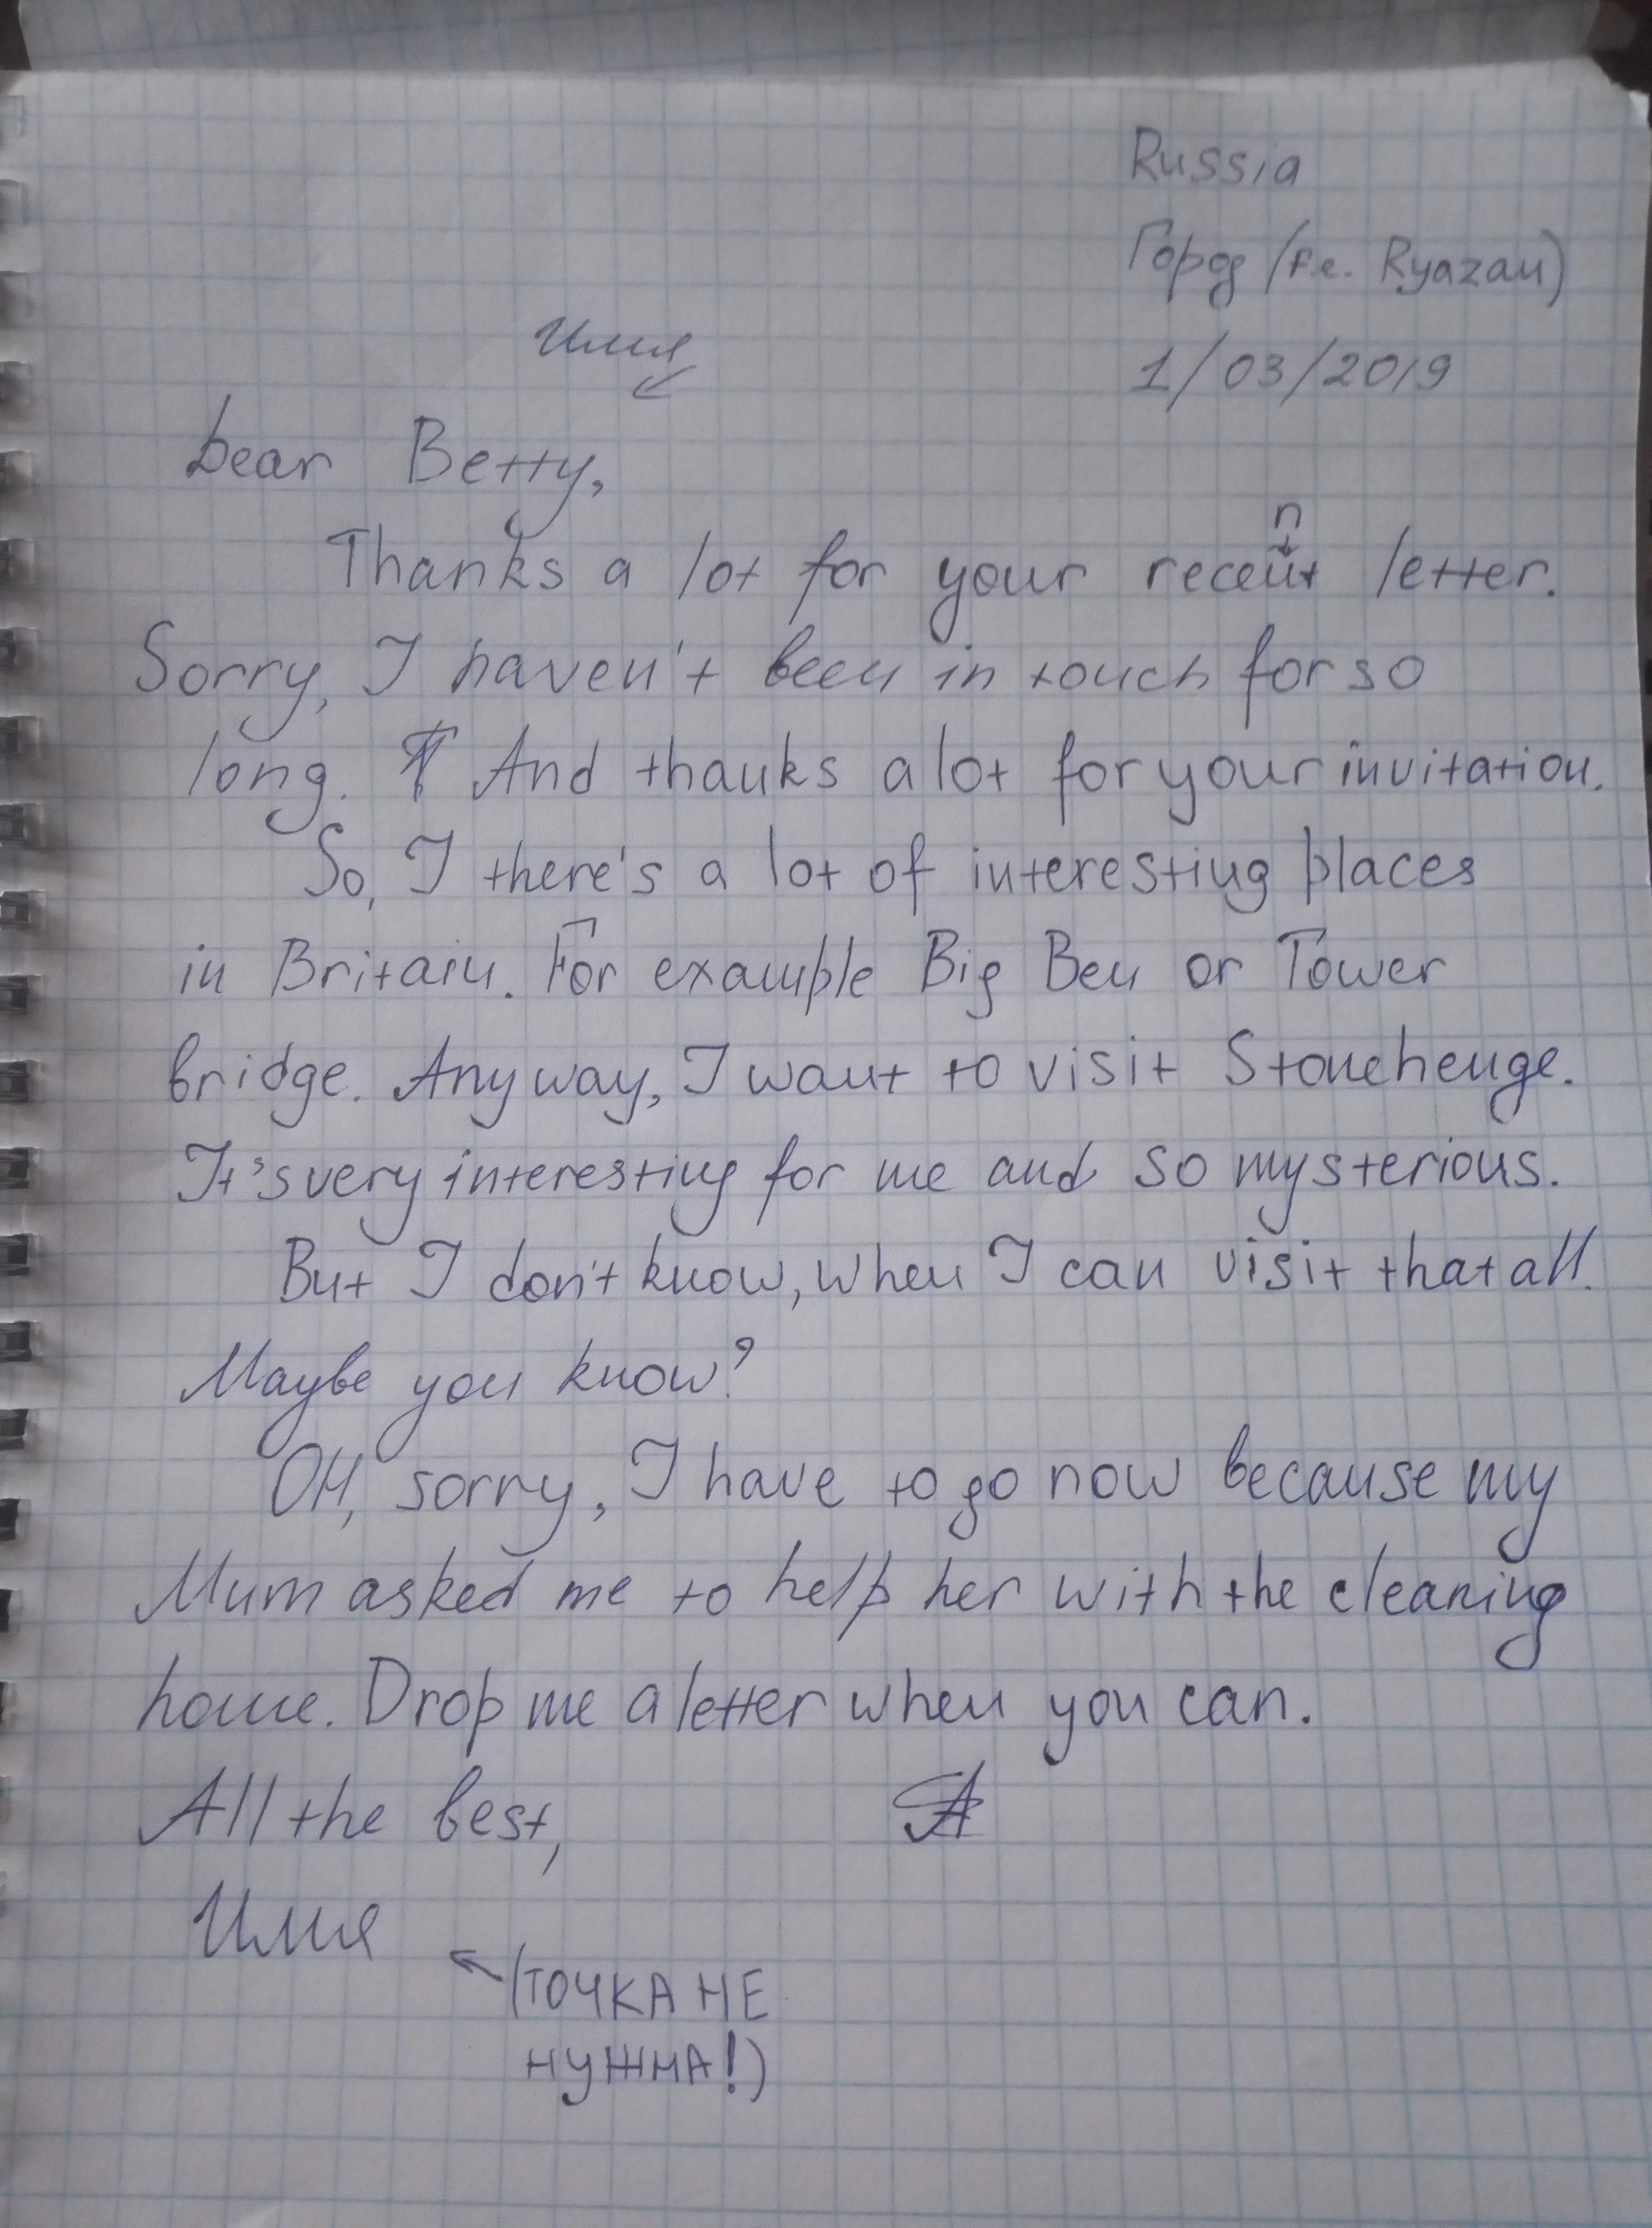 Russia
Город (f.e. Ryazan)
1/03/2019
Имя
Dear Betty,
n
Thanks a lot for your recent letter.
Sorry, I haven't been in touch for so
long. And thanks a lot for your invitation.
So, I there's a lot of interesting places
in Britain. For example Big Ben or Tower
bridge. Anyway, I want to visit Stonehenge.
It's very interesting for me and so mysterious.
But I don't know, when I can visit that all.
Maybe you know?
OH, sorry, I have to go now because my
Mum asked me to help her with the cleaning
home. Drop me a letter when you can.
All the best,
Имя
(ТОЧКА НЕ
НУЖНА!)